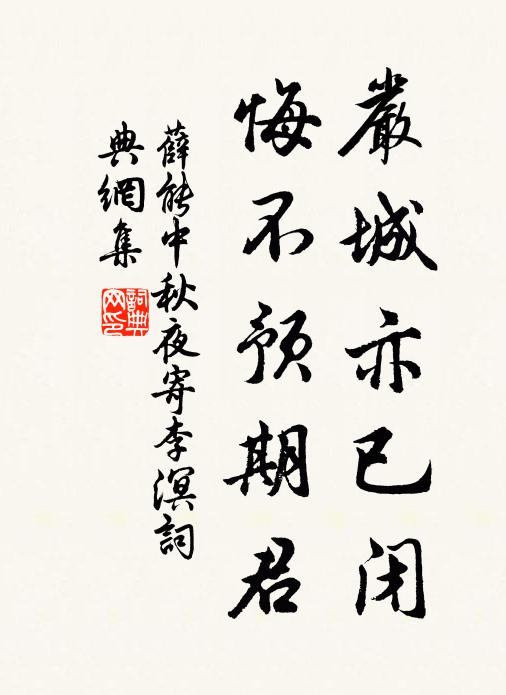 嚴城亦已閉
悔不預期君
薛能中秋夜寄李溟詞
典網集
詞典
网印